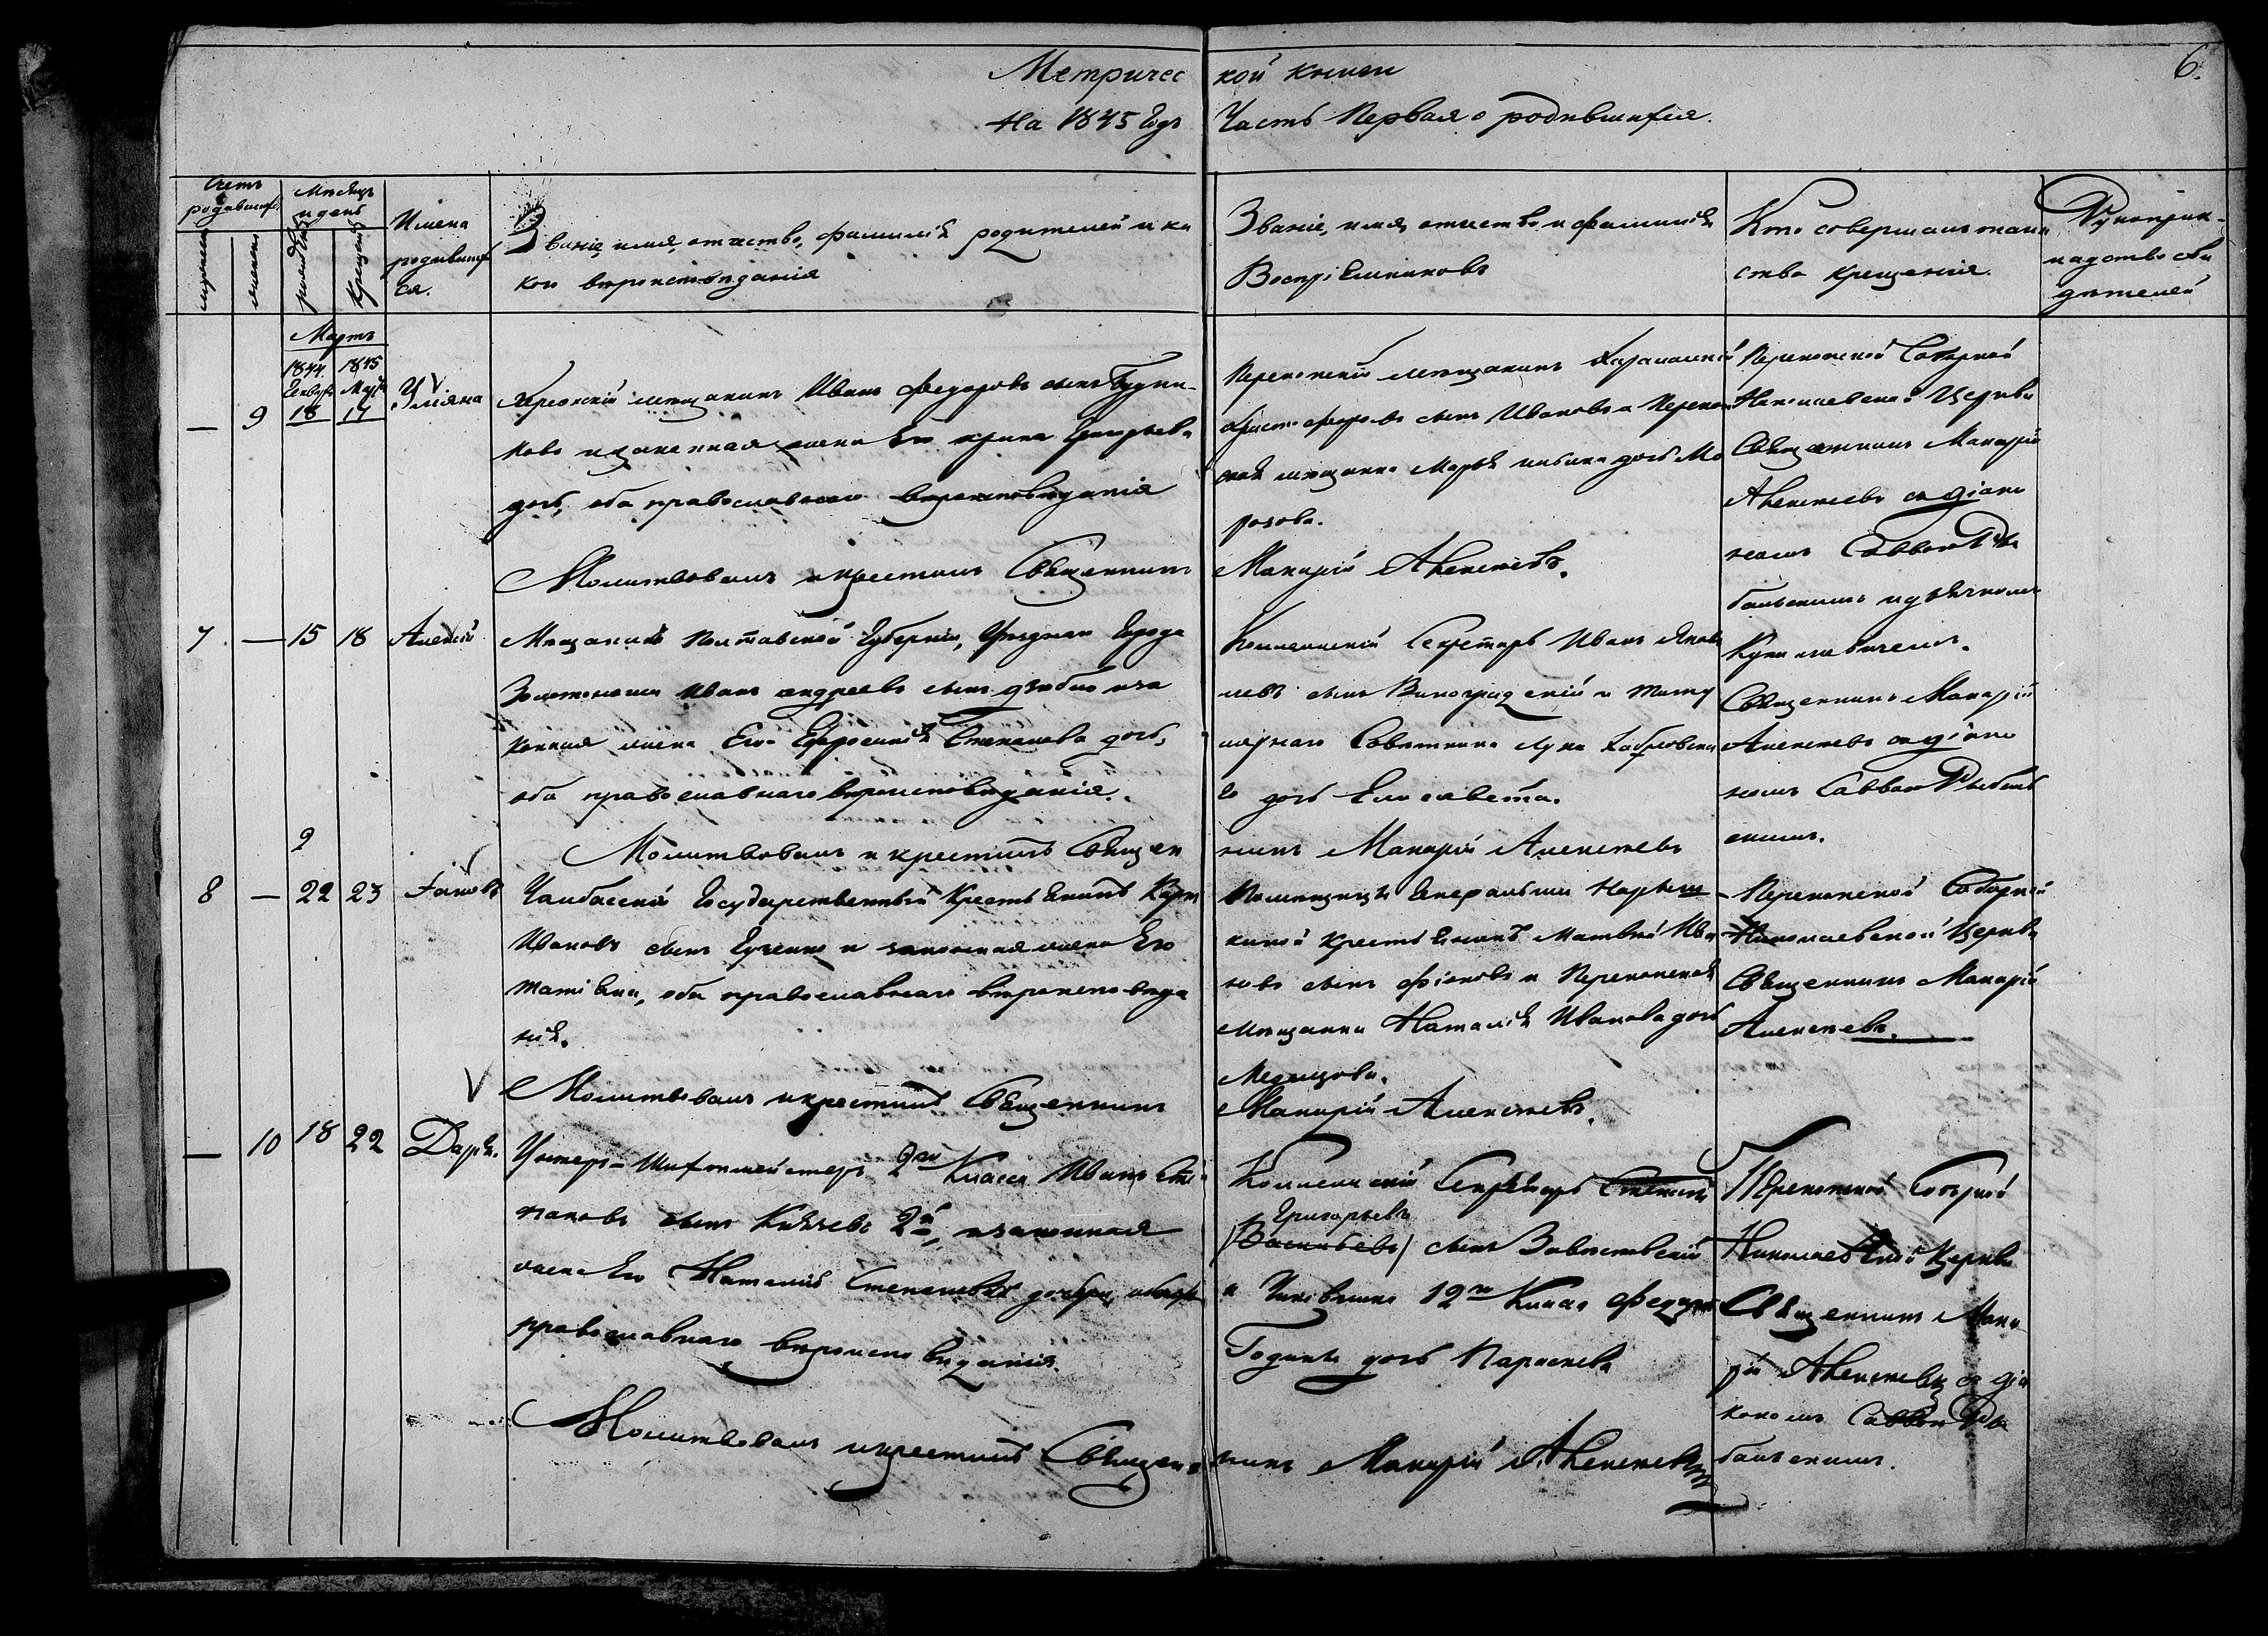 Метричес кой книги
6.
на 1845 Годъ Часть Первая о родившихся.
Счетъ родившихся
Мѣсяцъ и день
мужеска
женска
рожденія
Крещенія
Имена
родивших
ся.
Званіе, имя, отчество, фамилія родителей и ка
кого вѣроисповѣданія
Званіе, имя, отчество и фамилія
Воспріемниковъ
Кто совершалъ таин
ство крещенія.
Рукоприк-
ладство сви
дѣтелей
Мартъ
1844. 1845
Генваря Марта
— 9 18 17 Уліяна
Херсонскій мещанинъ Иванъ Федоровъ сынъ
ковъ и законная жена Его Григорьева
дочь, оба православнаго вѣроисповѣданія
Молитвовалъ и крестилъ Священникъ
Перекопскій мещанинъ
сынъ Ивановъ и Перекоп
ская мещанка Марья дочь Мо
розова.
Макарій Алексѣевъ.
Перекопской Соборной
Николаевской Церкви
Священникъ Макарій
Алексѣевъ съ діако
номъ Саввою Ры
бальскимъ и дьячкомъ
7. — 15 18 Алексій
Мещанинъ Полтавской Губерніи, Уѣзднаго Города
Золотоноши Иванъ андреевъ сынъ и за
конная жена Его Евфросинія Степанова дочь,
оба православнаго вѣроисповѣданія.
Молитвовалъ и крестилъ Священ
Коллежскій Секретарь Иванъ Яков
левъ сынъ Виноградскій и Титу
лярнаго Совѣтника Луки
го дочь Елисавета.
никъ Макарій Алексѣевъ
Священникъ Макарій
Алексѣевъ съ діако
номъ Саввою Рыбаль
скимъ.
2
8 — 22 23 Іаковъ
Чалбасскій Государственный Крестьянинъ
Ивановъ сынъ и законная жена Его
Татіана, оба православнаго вѣроисповѣда
нія.
Молитвовалъ и крестилъ Священникъ
Помѣщицы Генеральши Нарыш
киной крестьянинъ Матвѣй Ива
новъ сынъ и Перекопская
мещанка Наталія Иванова дочь
Макарій Алексѣевъ.
Перекопской Соборной
Николаевской Церкви
Священникъ Макарій
Алексѣевъ.
— 10 18 22 Дарья.
Унтеръ-Шихтмейстеръ 2го Класса Иванъ Сте
пановъ сынъ Князевъ 2й, и законная
жена Его Наталія Степановна дочь, оба
православнаго вѣроисповѣданія.
Молитвовалъ и крестилъ Священ
Коллежскій Секретарь
Григорьевъ
(Васильевъ) сынъ
и Чиновника 12го Класа Федора
Годины дочь Параскева
никъ Макарій Алексѣевъ
Перекопской Соборной
Николаевской Церкви
Священникъ Мака
рій Алексѣевъ съ діа
кономъ Саввою Ры
бальскимъ.